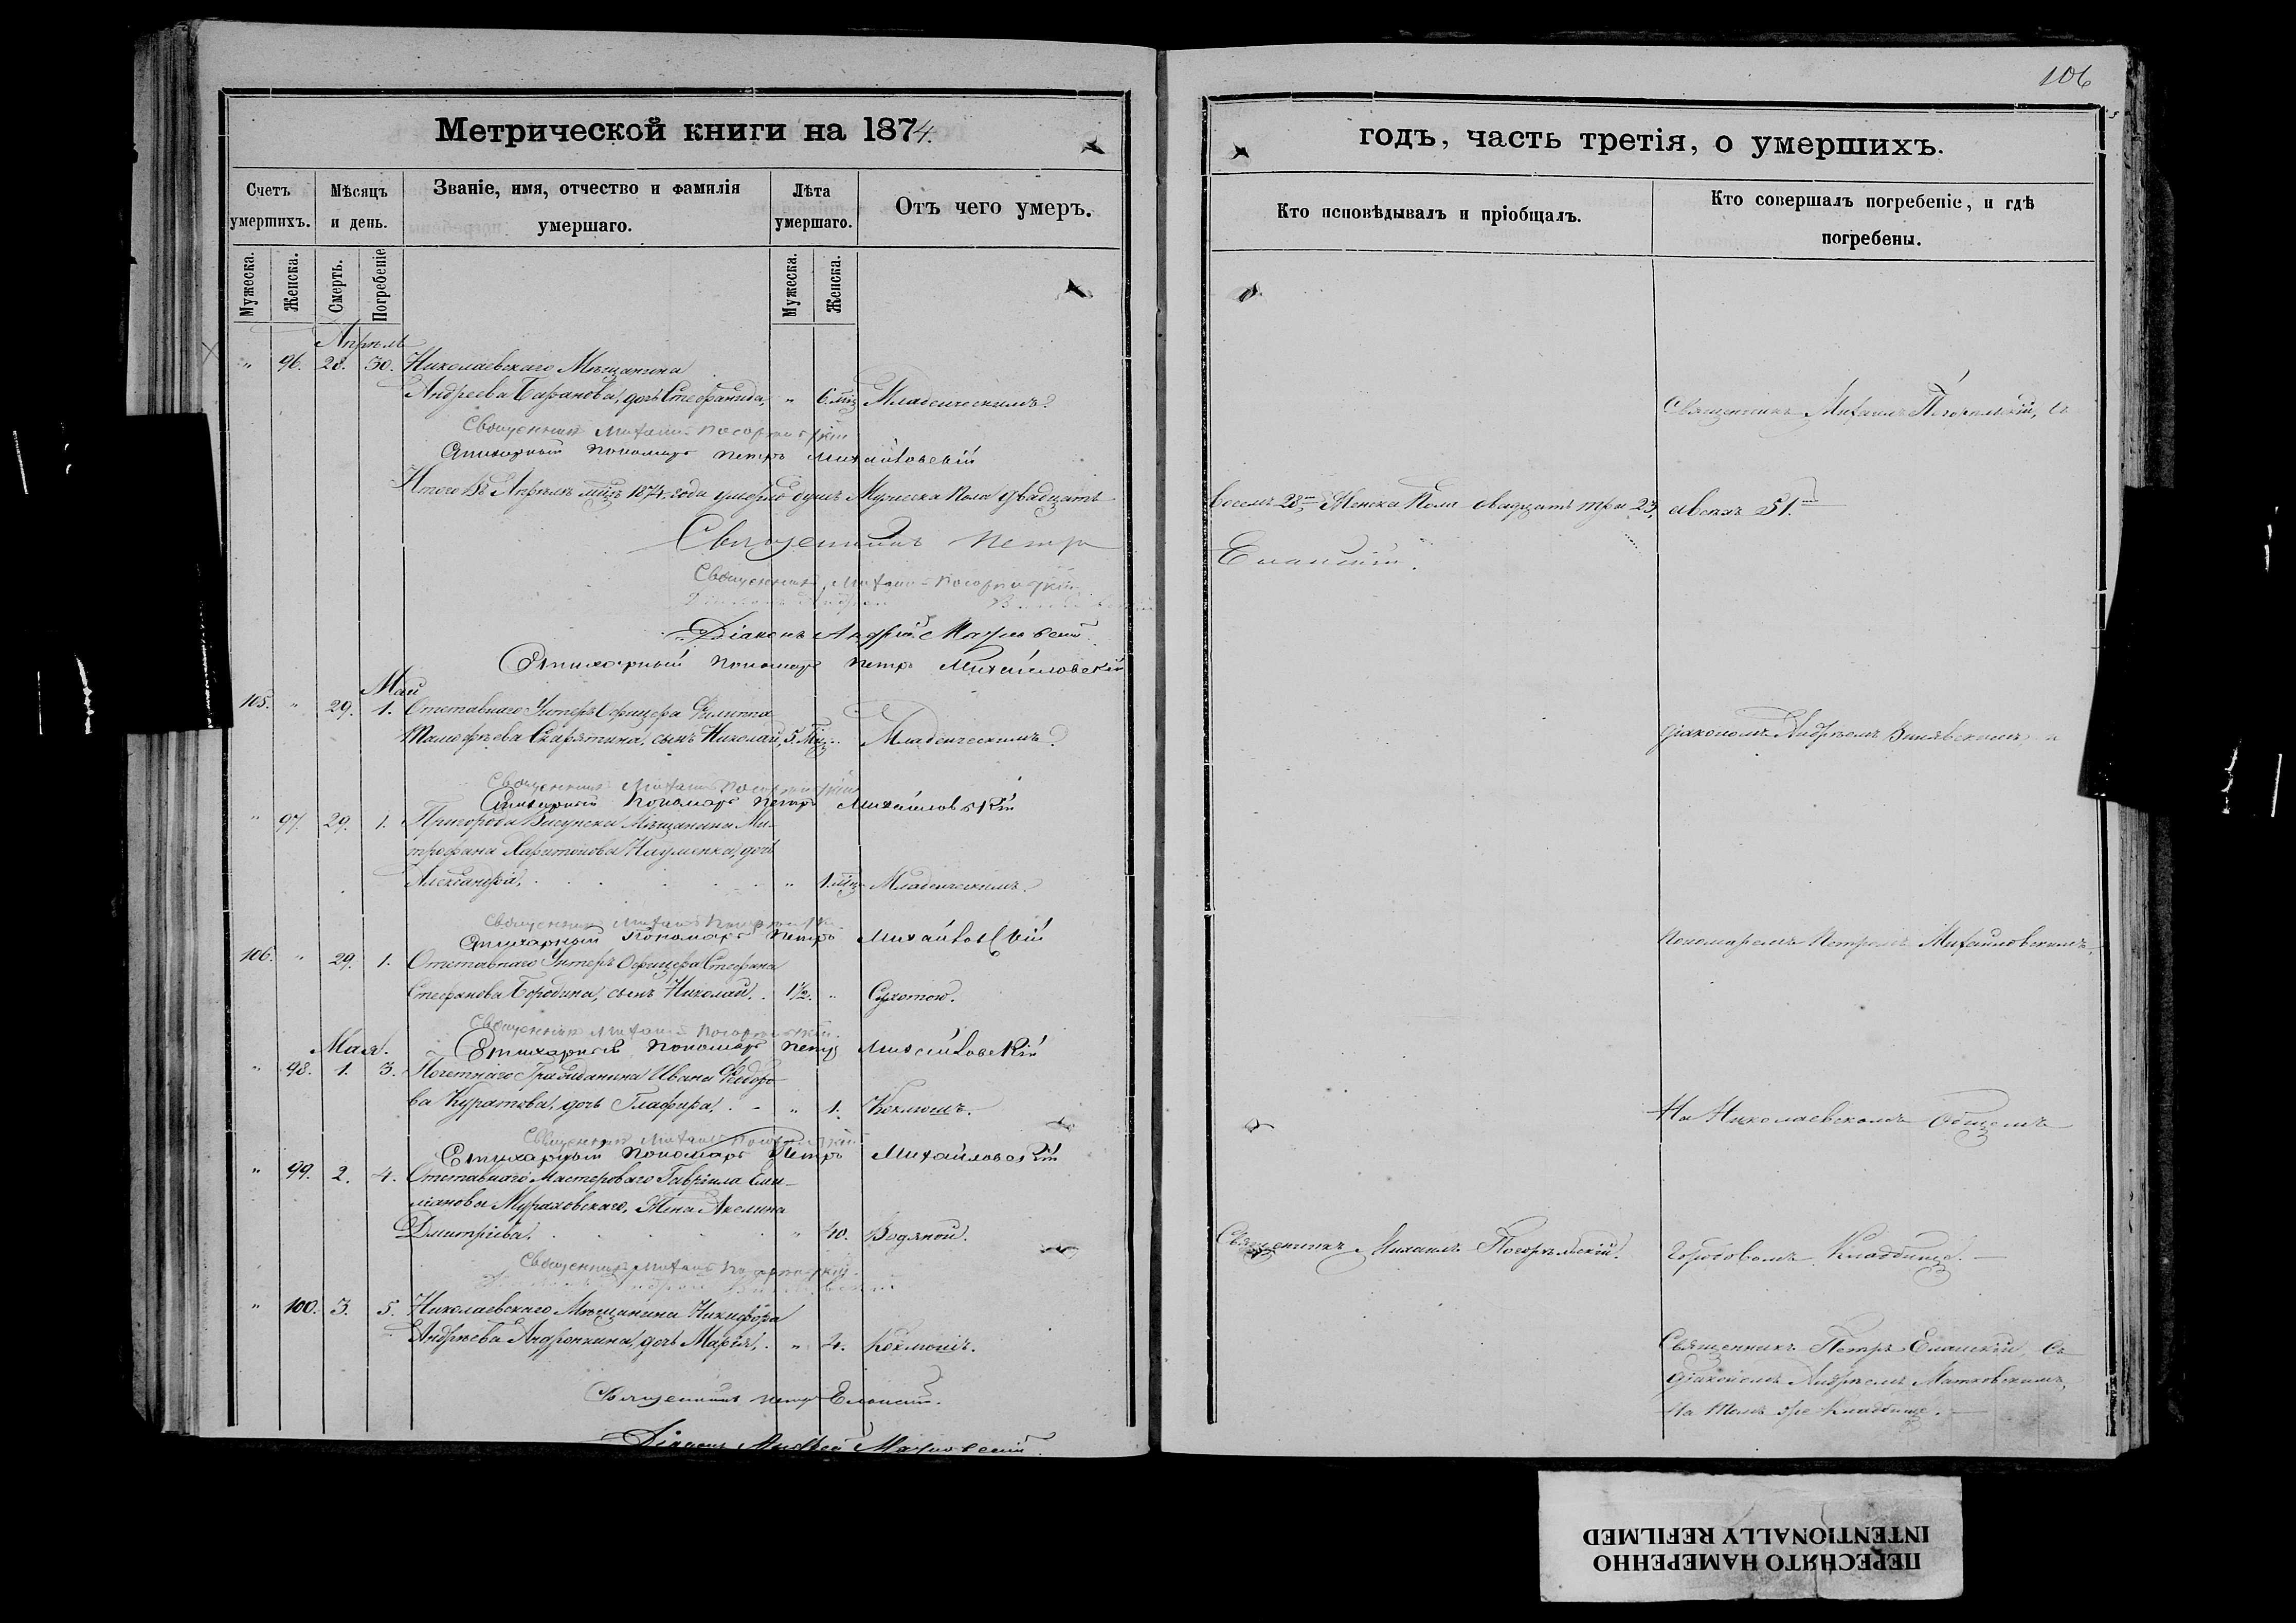 106
Метрической книги на 1874.
годъ, часть третія, о умершихъ.
Счетъ умершихъ.
Мѣсяцъ и день.
Званіе, имя, отчество и фамилія умершаго.
Лѣта умершаго.
Отъ чего умеръ.
Кто исповѣдывалъ и пріобщалъ.
Кто совершалъ погребеніе, и гдѣ погребены.
Мужеска.
Женска.
Смерть.
Погребеніе
Мужеска.
Женска.
Апрѣль
" 96. 28. 30. Николаевскаго Мѣщанина
Андреева Баранова, дочь Стефанида, " 6. мц. Младенческимъ.
Священникъ Михаилъ Погорѣльскій, съ
Священникъ Михаилъ Погорѣльскій
Стихарный Пономарь Петръ Михайловскій
Итого въ Апрѣлѣ мцѣ 1874 года умерло душъ Мужеска Пола двадцать
восемь 28, Женска Пола двадцать три 23, обоихъ 51.
Священникъ Петръ
Еланскій.
Священникъ Михаилъ Погорѣльскій
Діаконъ Андрей
Стихарный Пономарь Петръ Михайловскій
Май
105. " 29. 1. Отставнаго Унтеръ Офицера Филиппа
Тимофѣева Скарятина, сынъ Николай, 5. мц. " Младенческимъ.
діакономъ Андреемъ и
Священникъ Михаилъ Погорѣльскій
Стихарный Пономарь Петръ Михайловскій
" 97. 29. 1. Пригорода Висунска Мѣщанина Ми-
трофана Харитонова Науменка, дочь
Александра, " 1. мц. Младенческимъ.
Священникъ Михаилъ Погорѣльскій
Стихарный Пономарь Петръ Михайловскій
Пономаремъ Петромъ Михайловскимъ,
106. " 29. 1. Отставнаго Унтеръ Офицера Стефана
Стефанова Бородина, сынъ Николай. 1½. " Сухотою.
Священникъ Михаилъ Погорѣльскій
Стихарный Пономарь Петръ Михайловскій
Мая.
" 98. 1. 3. Почетнаго Гражданина Ивана Федоро-
ва Куратова, дочь Глафира, " 1. Коклюшъ.
На Николаевскомъ Общемъ
Священникъ Михаилъ Погорѣльскій
Стихарный Пономарь Петръ Михайловскій
" 99. 2. 4. Отставнаго Мастероваго Гавріила Еми-
ліанова Мураховскаго, Жена Акелина
Дмитріева, " 40. Водяной.
Священникъ Михаилъ Погорѣльскій.
Городовомъ Кладбище.
Священникъ Михаилъ Погорѣльскій
" 100. 3. 5. Николаевскаго Мѣщанина Никифора
Андрѣева Андронкина, дочь Марія, " 4. Коклюшъ.
Священникъ Петръ Еланскій, Съ
діакономъ Андреемъ
На томъ же Кладбище.
Священникъ Петръ Еланскій.
Діаконъ Андрей
ПЕРЕСНЯТО НАМЕРЕННО
INTENTIONALLY REFILMED